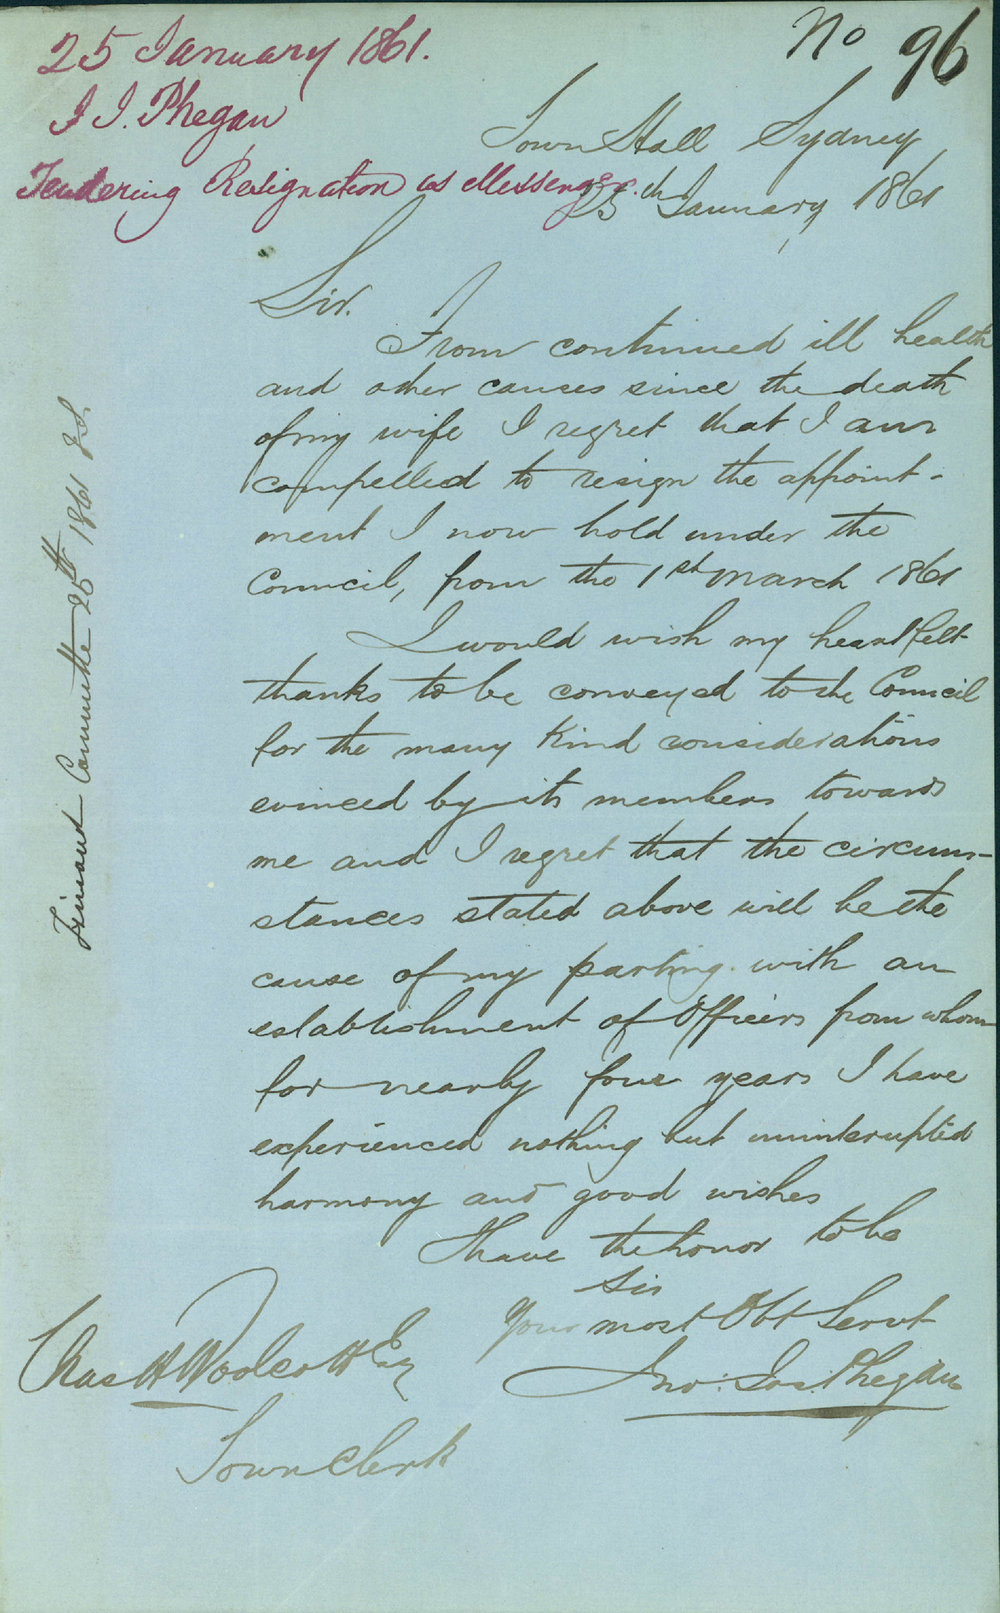 25 January 1861.
No 96
J J. Phegan
Tendering Resignation as Messenger.
Town Hall Sydney
25th January 1861
Sir.
From continued ill health
and other causes since the death
of my wife I regret that I am
compelled to resign the appoint-
ment I now hold under the
Council, from the 1st March 1861
I would wish my heartfelt
thanks to be conveyed to the Council
for the many kind considerations
evinced by its members towards
me and I regret that the circum-
stances stated above will be the
cause of my parting with an
establishment of Officers from whom
for nearly four years I have
experienced nothing but uninterupted
harmony and good wishes
I have the honor to be
Sir
Your most Obt Servt
Jno: Jos. Phegan
Chas H Woolcott Esq
Town Clerk
Finance Committee 25th 1861